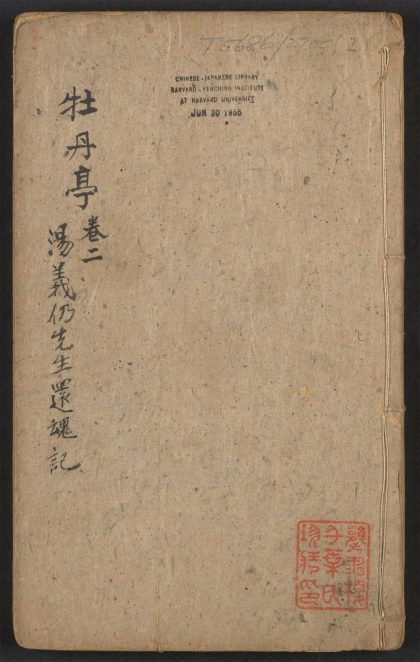 CHINESE-JAPANESE LIBRARY
HARVARD-YENCHING INSTITUTE
AT HARVARD UNIVERSITY
JUN 30 1955
牡丹亭
卷二
湯義仍先生還魂記